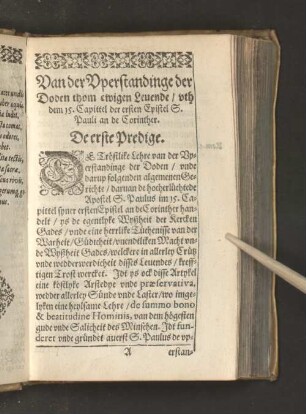 Van der Vperstandinge der
Doden thom ewigen Leuende / vth
dem 15. Capittel der ersten Epistel S.
Pauli an de Corinther.
De erste Predige.
DE Tröstlike Lehre van der Vp-
erstandinge der Doden / vnde
darup folgenden algemenen Ge-
richte / daruan de hocherlüchtede
Apostel S. Paulus im 15. Ca-
pittel syner ersten Epistel an de Corinther han-
delt / ys de egentlyke Wyßheit der Kercken
Gades / vnde eine herrlike Tüchenisse van der
Warheit / Güdicheit / vnendtliken Macht vnde
Wyßheit Gades / welckere in allerley Crütz
vnde wedderwerdicheit disses Leuendes / kreff-
tigen Trost wercket. Idt ys ock disse Artykel
eine köstlyke Arstedye vnde præservativa,
wedder allerley Sünde vnde Laster / vnde imge-
lyken eine heylsame Lehre / de summo bono
& beatitudine Hominis, van dem högesten
gude vnde Salicheit des Minschen. Idt fun-
deret vnde gründet auerst S. Paulus de vp-
A erstan-